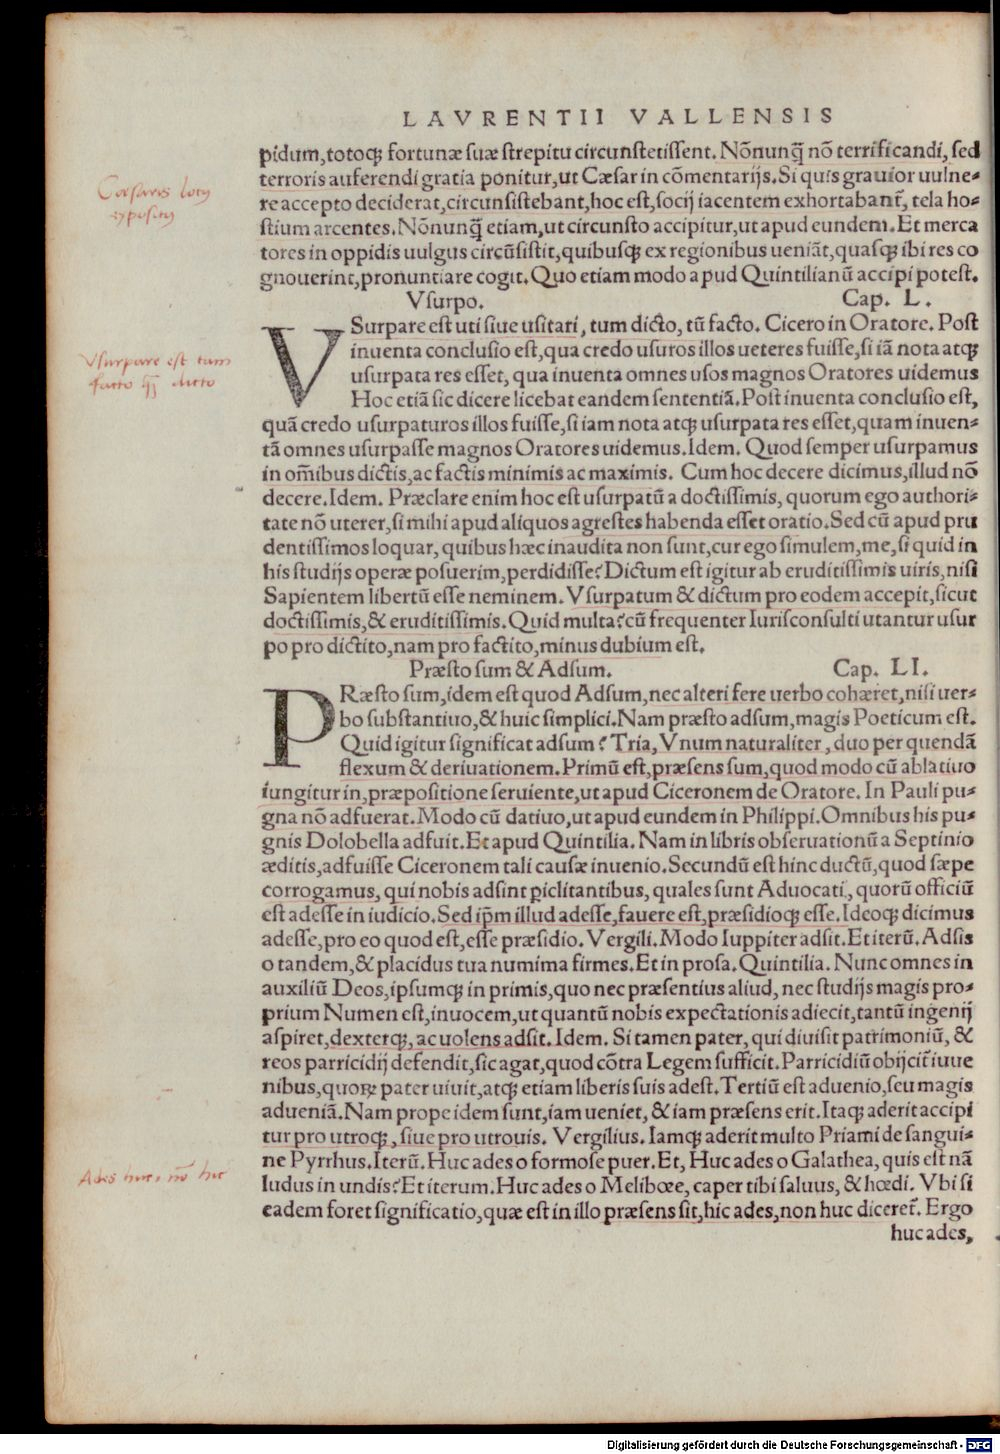 LAVRENTII VALLENSIS
pidum,totoqꝫ fortunæ suæ strepitu circunstetissent. Nõnunq̃ nõ terrificandi, sed
terroris auferendi gratia ponitur,ut Cæsar in cõmentarijs. Si quis grauior uulne-
re accepto deciderat,circunsistebant,hoc est,socij iacentem exhortabant᷑, tela ho-
stium arcentes. Nõnunq̃ etiam,ut circunsto accipitur,ut apud eundem. Et merca
tores in oppidis uulgus circũsistit,quibusqꝫ ex regionibus ueniãt,quasqꝫ ibi res co
gnouerint,pronuntiare cogit. Quo etiam modo apud Quintilianũ accipi potest.
Vsurpo. Cap. L.
VSurpare est uti siue usitari, tum dicto, tũ facto. Cicero in Oratore. Post
inuenta conclusio est,qua credo usuros illos ueteres fuisse,si iã nota atqꝫ
usurpata res esset, qua inuenta omnes usos magnos Oratores uidemus
Hoc etiã sic dicere licebat eandem sententiã. Post inuenta conclusio est,
quã credo usurpaturos illos fuisse,si iam nota atqꝫ usurpata res esset,quam inuen-
tã omnes usurpasse magnos Oratores uidemus.Idem. Quod semper usurpamus
in om̃ibus dictis,ac factis minimis ac maximis. Cum hoc decere dicimus,illud nõ
decere.Idem. Præclare enim hoc est usurpatũ a doctissimis, quorum ego authori-
tate nõ uterer,si mihi apud aliquos agrestes habenda esset oratio.Sed cũ apud pru
dentissimos loquar, quibus hæc inaudita non sunt,cur ego simulem,me,si quid in
his studijs operæ posuerim,perdidisse? Dictum est igitur ab eruditissimis uiris,nisi
Sapientem libertũ esse neminem. Vsurpatum & dictum pro eodem accepit,sicut
doctissimis,& eruditissimis. Quid multa?cũ frequenter Iurisconsulti utantur usur
po pro dictito,nam pro factito,minus dubium est.
Præsto sum & Adsum. Cap. LI.
PRæsto sum,idem est quod Adsum,nec alteri fere uerbo cohæret,nisi uer-
bo substantiuo,& huic simplici.Nam præsto adsum,magis Poeticum est.
Quid igitur significat adsum? Tria, Vnum naturaliter, duo per quendã
flexum & deriuationem. Primũ est,præsens sum,quod modo cũ ablatiuo
iungitur in,præpositione seruiente,ut apud Ciceronem de Oratore. In Pauli pu-
gna nõ adfuerat. Modo cũ datiuo,ut apud eundem in Philippi.Omnibus his pu-
gnis Dolobella adfuit. Et apud Quintilia. Nam in libris obseruationũ a Septinio
æditis,adfuisse Ciceronem tali causæ inuenio.Secundũ est hinc ductũ,quod sæpe
corrogamus, qui nobis adsint ꝑiclitantibus, quales sunt Aduocati, quorũ officiũ
est adesse in iudicio. Sed ip̃m illud adesse,fauere est,præsidioqꝫ esse. Ideoqꝫ dicimus
adesse,pro eo quod est,esse præsidio. Vergili. Modo Iuppiter adsit. Et iterũ. Adsis
o tandem,& placidus tua numima firmes. Et in prosa. Quintilia. Nunc omnes in
auxiliũ Deos,ipsumqꝫ in primis,quo nec præsentius aliud, nec studijs magis pro-
prium Numen est,inuocem,ut quantũ nobis expectationis adiecit,tantũ ingenij
aspiret,dexterqꝫ, ac uolens adsit. Idem. Si tamen pater, qui diuisit patrimoniũ, &
reos parricidij defendit,sic agat,quod cõtra Legem sufficit. Parricidiũ obijcit᷑ iuue
nibus,quoꝝ pater uiuit,atqꝫ etiam liberis suis adest. Tertiũ est aduenio,seu magis
adueniã. Nam prope idem sunt,iam ueniet, & iam præsens erit. Itaqꝫ aderit accipi
tur pro utroqꝫ, siue pro utrouis. Vergilius. Iamqꝫ aderit multo Priami de sangui-
ne Pyrrhus. Iterũ. Huc ades o formose puer. Et, Huc ades o Galathea, quis est nã
ludus in undis? Et iterum. Huc ades o Melibœe, caper tibi saluus, & hœdi. Vbi si
eadem foret significatio,quæ est in illo præsens sit,hic ades,non huc diceret᷑. Ergo
huc ades,
Cæsaris locus
expositus
Vsurpare est tum
facto q̃ dicto
Ades huc, nõ hic
Digitalisierung gefördert durch die Deutsche Forschungsgemeinschaft - DFG